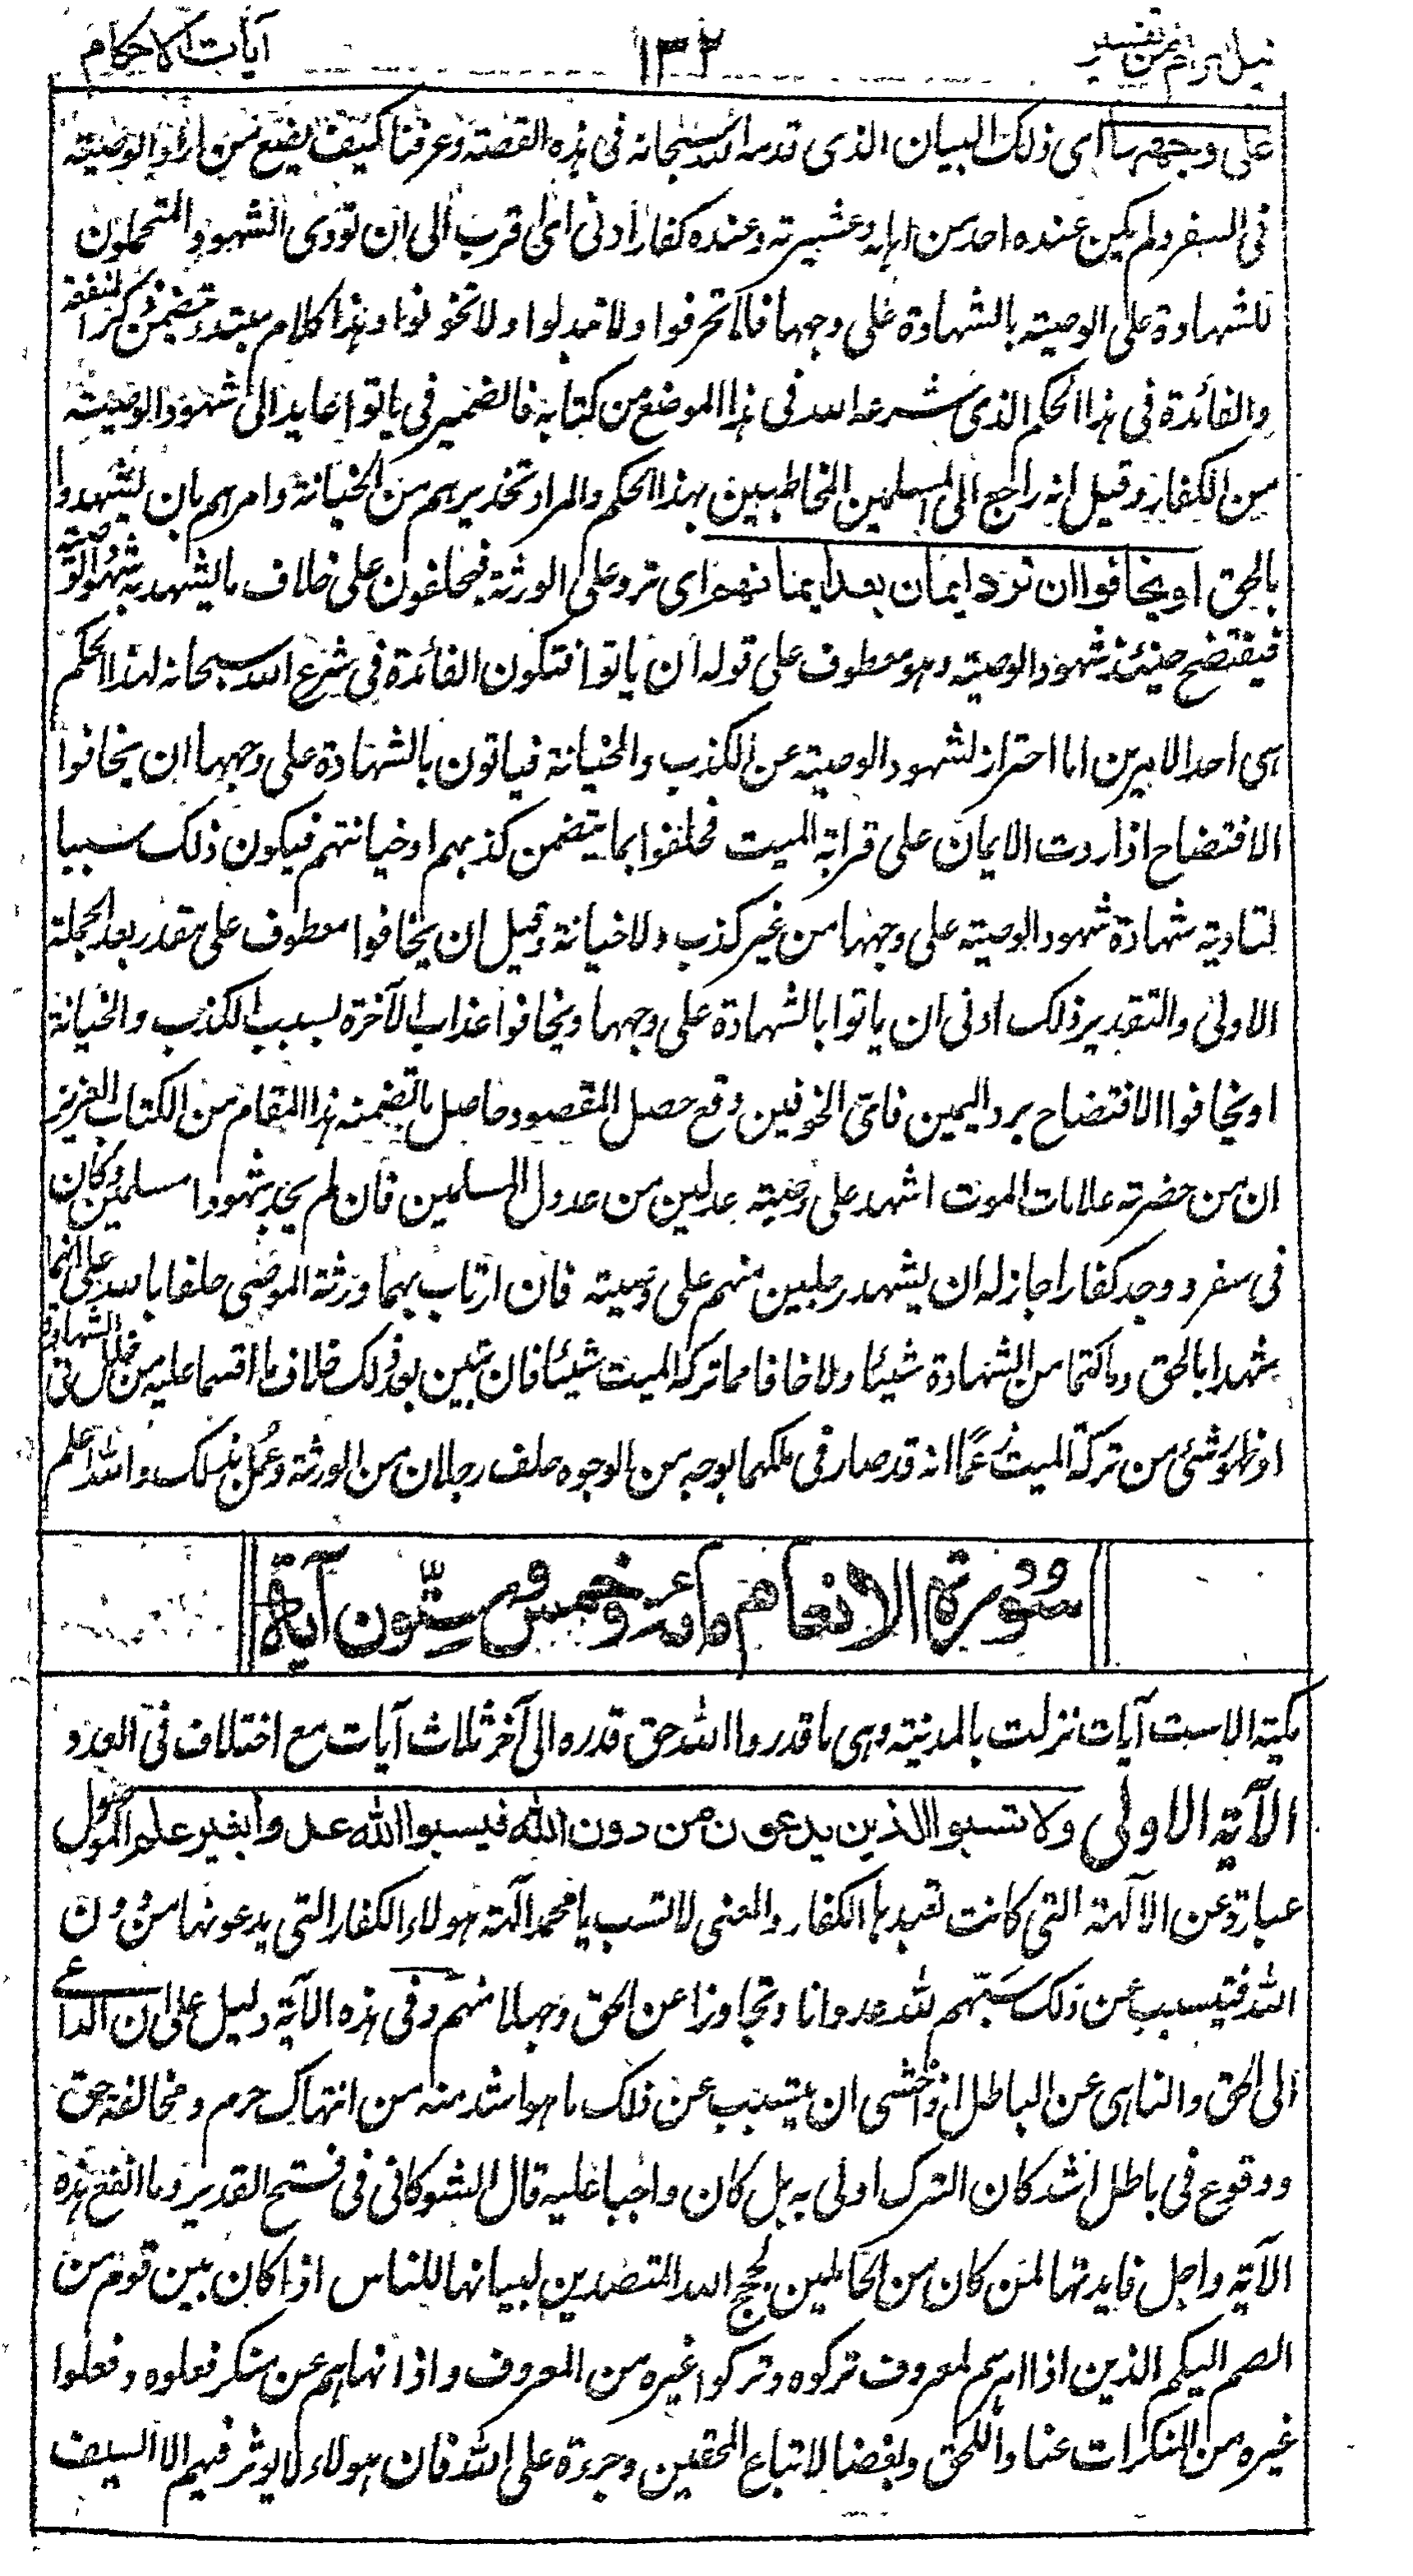 نيل المرام من تفسير ١٣٢ آيات الاحكام
على وجهها اى ذلك البيان الذى قدمه الله سبحانه فى هذه القصة وعرفنا كيف يصنع من اراد الوصية
فى السفر ولم يكن عنده احد من اهله وعشيرته وعنده كفار ادنى اى اقرب الى ان تؤدى الشهود المتحملون
للشهادة على الوصية بالشهادة على وجهها فلا تحرفوا ولا تبدلوا ولا تخونوا وهذا كلام مبتدء يتضمن ذكر المنفعة
والفائدة فى هذا الحكم الذى شرعه الله فى هذا الموضع من كتابه فالضمير فى ياتوا عايد الى شهود الوصية
من الكفار وقيل انه راجع الى المسلمين المخاطبين بهذا الحكم والمراد تحذيرهم من الخيانة وامرهم بان يشهدوا
بالحق او يخافوا ان ترد ايمان بعد ايمانهم اى ترد على الورثة فيحلفون على خلاف ما يشهد به شهود الوصية
فيفتضح حينئذ شهود الوصية وهو معطوف على قوله ان ياتوا فتكون الفائدة فى شرع الله سبحانه لهذا الحكم
هى احد الامرين اما احتراز لشهود الوصية عن الكذب والخيانة فياتون بالشهادة على وجهها ان يخافوا
الافتضاح اذا ردت الايمان على قرابة الميت فحلفوا بما يتضمن كذبهم او خيانتهم فيكون ذلك سببا
لتادية شهادة شهود الوصية على وجهها من غير كذب ولا خيانة وقيل ان يخافوا معطوف على مقدر بعد الجملة
الاولى والتقدير ذلك ادنى ان ياتوا بالشهادة على وجهها ويخافوا عذاب الآخرة بسبب الكذب والخيانة
او يخافوا الافتضاح برد اليمين فاى الخوفين وقع حصل المقصود حاصل ما تضمنه هذا المقام من الكتاب العزيز
ان من حضرته علامات الموت اشهد على وصيته عدلين من عدول المسلمين فان لم يجد شهودا مسلمين وكان
فى سفر ووجد كفارا جاز له ان يشهد رجلين منهم على وصيته فان ارتاب بهما ورثة الموصى حلفا بالله على انهما
شهدا بالحق وما كتما من الشهادة شيئا ولا خانا مما تركه الميت شيئا فان تبين بعد ذلك خلاف ما اقسما عليه من خلل فى الشهادة
او ظهور شئ من تركة الميت زعما انه قد صار فى ملكهما بوجه من الوجوه حلف رجلان من الورثة وعمل بذلك والله اعلم
سورة الانعام مائة وخمس وستون آية
مكية الا ست آيات نزلت بالمدينة وهى ما قدروا الله حق قدره الى آخر ثلاث آيات مع اختلاف فى العدد
الآية الاولى ولا تسبوا الذين يدعون من دون الله فيسبوا الله عدوا بغير علم الموصول
عبارة عن الالهة التى كانت تعبدها الكفار والمعنى لا تسب يا محمد آلهة هولاء الكفار التى يدعونها من دون
الله فيتسبب عن ذلك سبهم لله عدوانا وتجاوزا عن الحق وجهلا منهم وفى هذه الآية دليل على ان الداعى
الى الحق والناهى عن الباطل اذا خشى ان يتسبب عن ذلك ما هو اشد منه من انتهاك حرم ومخالفة حق
ووقوع فى باطل اشد كان الترك اولى به بل كان واجبا عليه قال الشوكانى فى فتح القدير وما انفع هذه
الآية واجل فايدتها لمن كان من الحاملين لحجج الله المتصدين لبيانها للناس اذا كان بين قوم من
الصم البكم الذين اذا امرهم لمعروف تركوه وتركوا غيره من المعروف واذا نهاهم عن منكر فعلوه وفعلوا
غيره من المنكرات عنادا للحق وبغضا لاتباع المحقين وجرءة على الله فان هولاء لا يوثر فيهم الا السيف